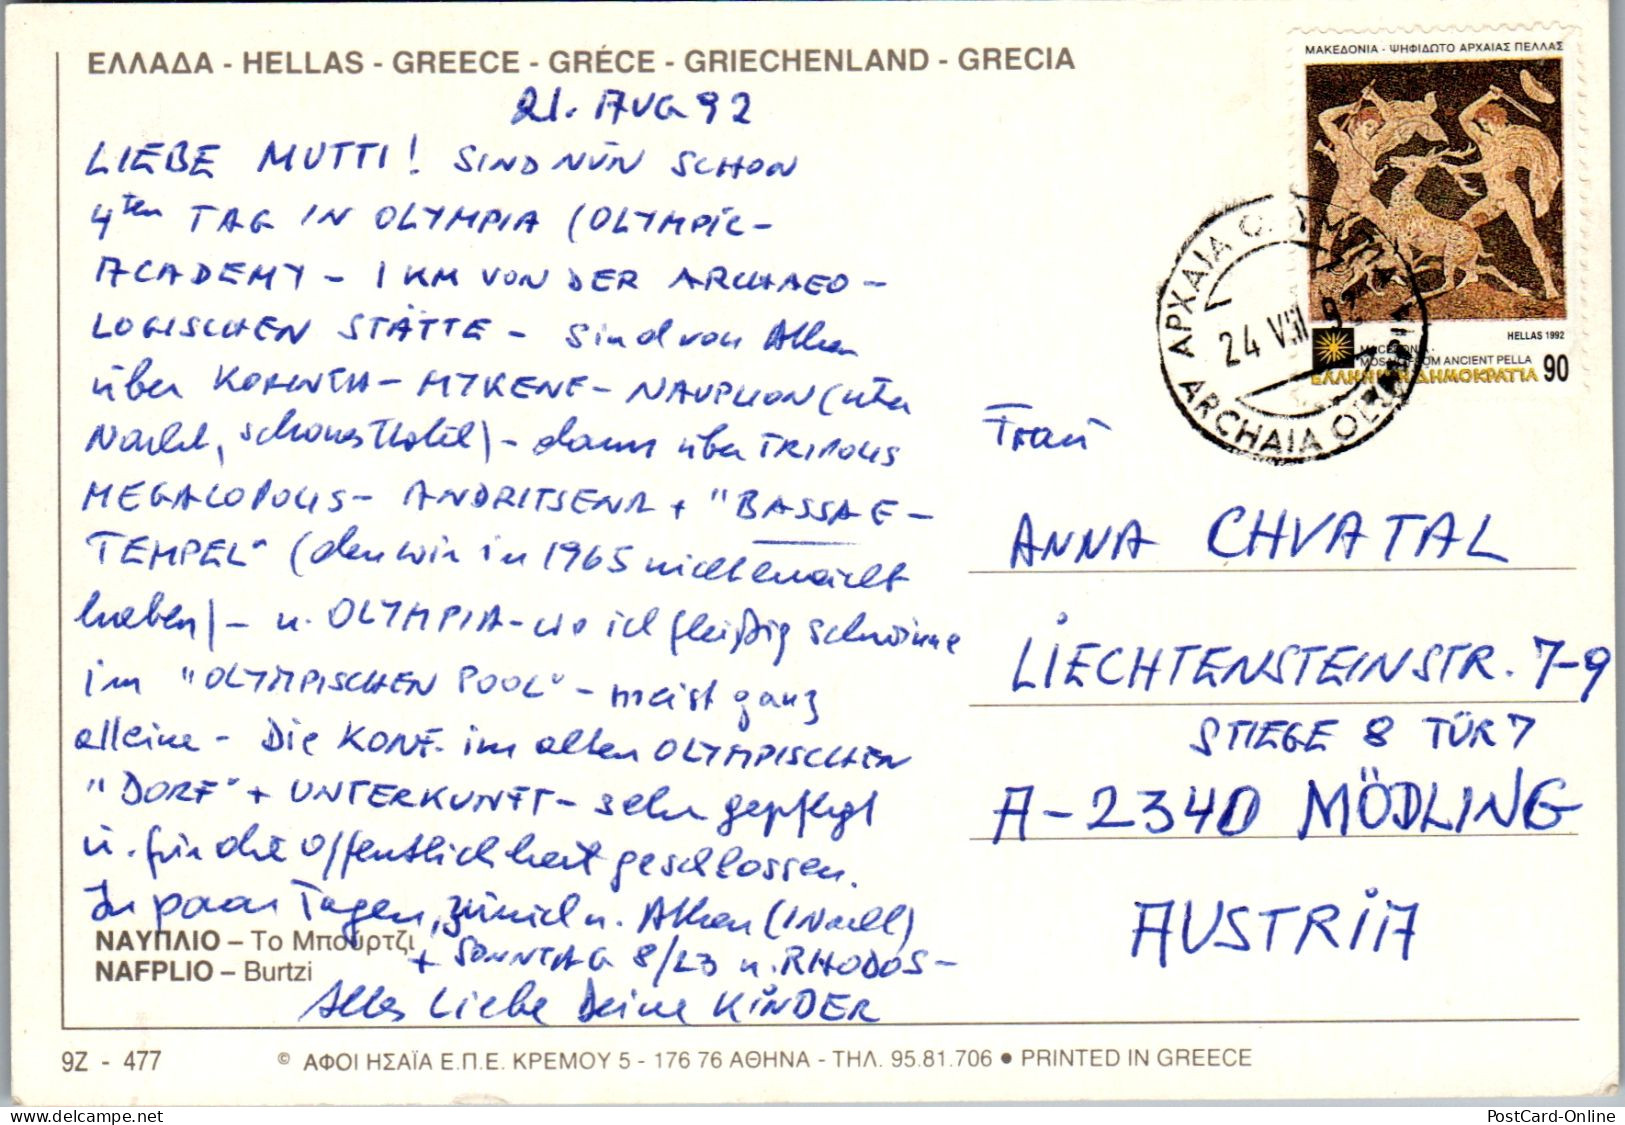 ΕΛΛΑΔΑ - HELLAS - GREECE - GRÉCE - GRIECHENLAND - GRECIA
21. AUG 92
LIEBE MUTTI! SIND NUN SCHON
4ten TAG IN OLYMPIA (OLYMPIC-
ACADEMY - 1 KM VON DER ARCHAEO-
LOGISCHEN STÄTTE - sind von Athen
über KORINTH - MYKENE - NAUPLION (über
Nacht, schönes Hotel) - dann über TRIPOLIS
MEGALOPOLIS - ANDRITSENA + "BASSAE-
TEMPEL" (den wir in 1965 nicht erreicht
haben) - u. OLYMPIA - wo ich fleißig schwimme
im "OLYMPISCHEN POOL" - meist ganz
alleine - Die KONF. im alten OLYMPISCHEN
"DORF" + UNTERKUNFT - sehr gepflegt
u. für die Öffentlichkeit geschlossen.
In paar Tagen zurück n. Athen (1 Nacht)
+ SONNTAG 8/23 n. RHODOS -
Alles Liebe Deine KINDER
ΝΑΥΠΛΙΟ – Το Μπούρτζι
NAFPLIO – Burtzi
ΜΑΚΕΔΟΝΙΑ - ΨΗΦΙΔΩΤΟ ΑΡΧΑΙΑΣ ΠΕΛΛΑΣ
HELLAS 1992
MACEDONIA -
MOSAIC FROM ANCIENT PELLA
ΕΛΛΗΝΙΚΗ ΔΗΜΟΚΡΑΤΙΑ 90
ΑΡΧΑΙΑ ΟΛΥΜΠΙΑ
24 VIII 92
ARCHAIA OLYMPIA
Frau
ANNA CHVATAL
LIECHTENSTEINSTR. 7-9
STIEGE 8 TÜR 7
A-2340 MÖDLING
AUSTRIA
9Z - 477
© ΑΦΟΙ ΗΣΑΪΑ Ε.Π.Ε. ΚΡΕΜΟΥ 5 - 176 76 ΑΘΗΝΑ - ΤΗΛ. 95.81.706 ● PRINTED IN GREECE
delcampe.net
PostCard-Online